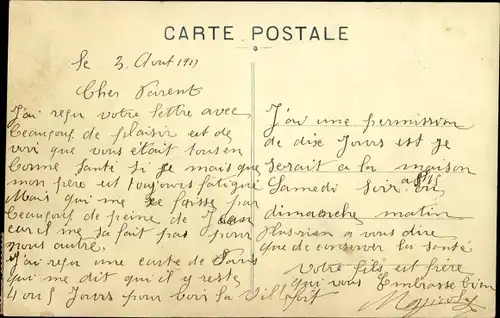 CARTE POSTALE
le 3 Aout 1911
Cher Parent
J'ai reçu votre lettre avec
beaucoup de plaisir est de
voir que vous était tous en
bonne santé si je mais que
mon père est toujours fatigué
Mais qui me laisse pas
beaucoup de peine de Jean
car il me sa fait pas pour
nous autre.
J'ai reçu une carte de Paris
qui me dit qu'il y reste
4 ou 5 Jours pour voir la Ville
J'ai une permission
de dix Jours est je
serait a la maison
Samedi soir ou
dimanche matin
Plus rien a vous dire
que de conserver la santé
Votre fils est frère
qui vous Embrasse bien
fort